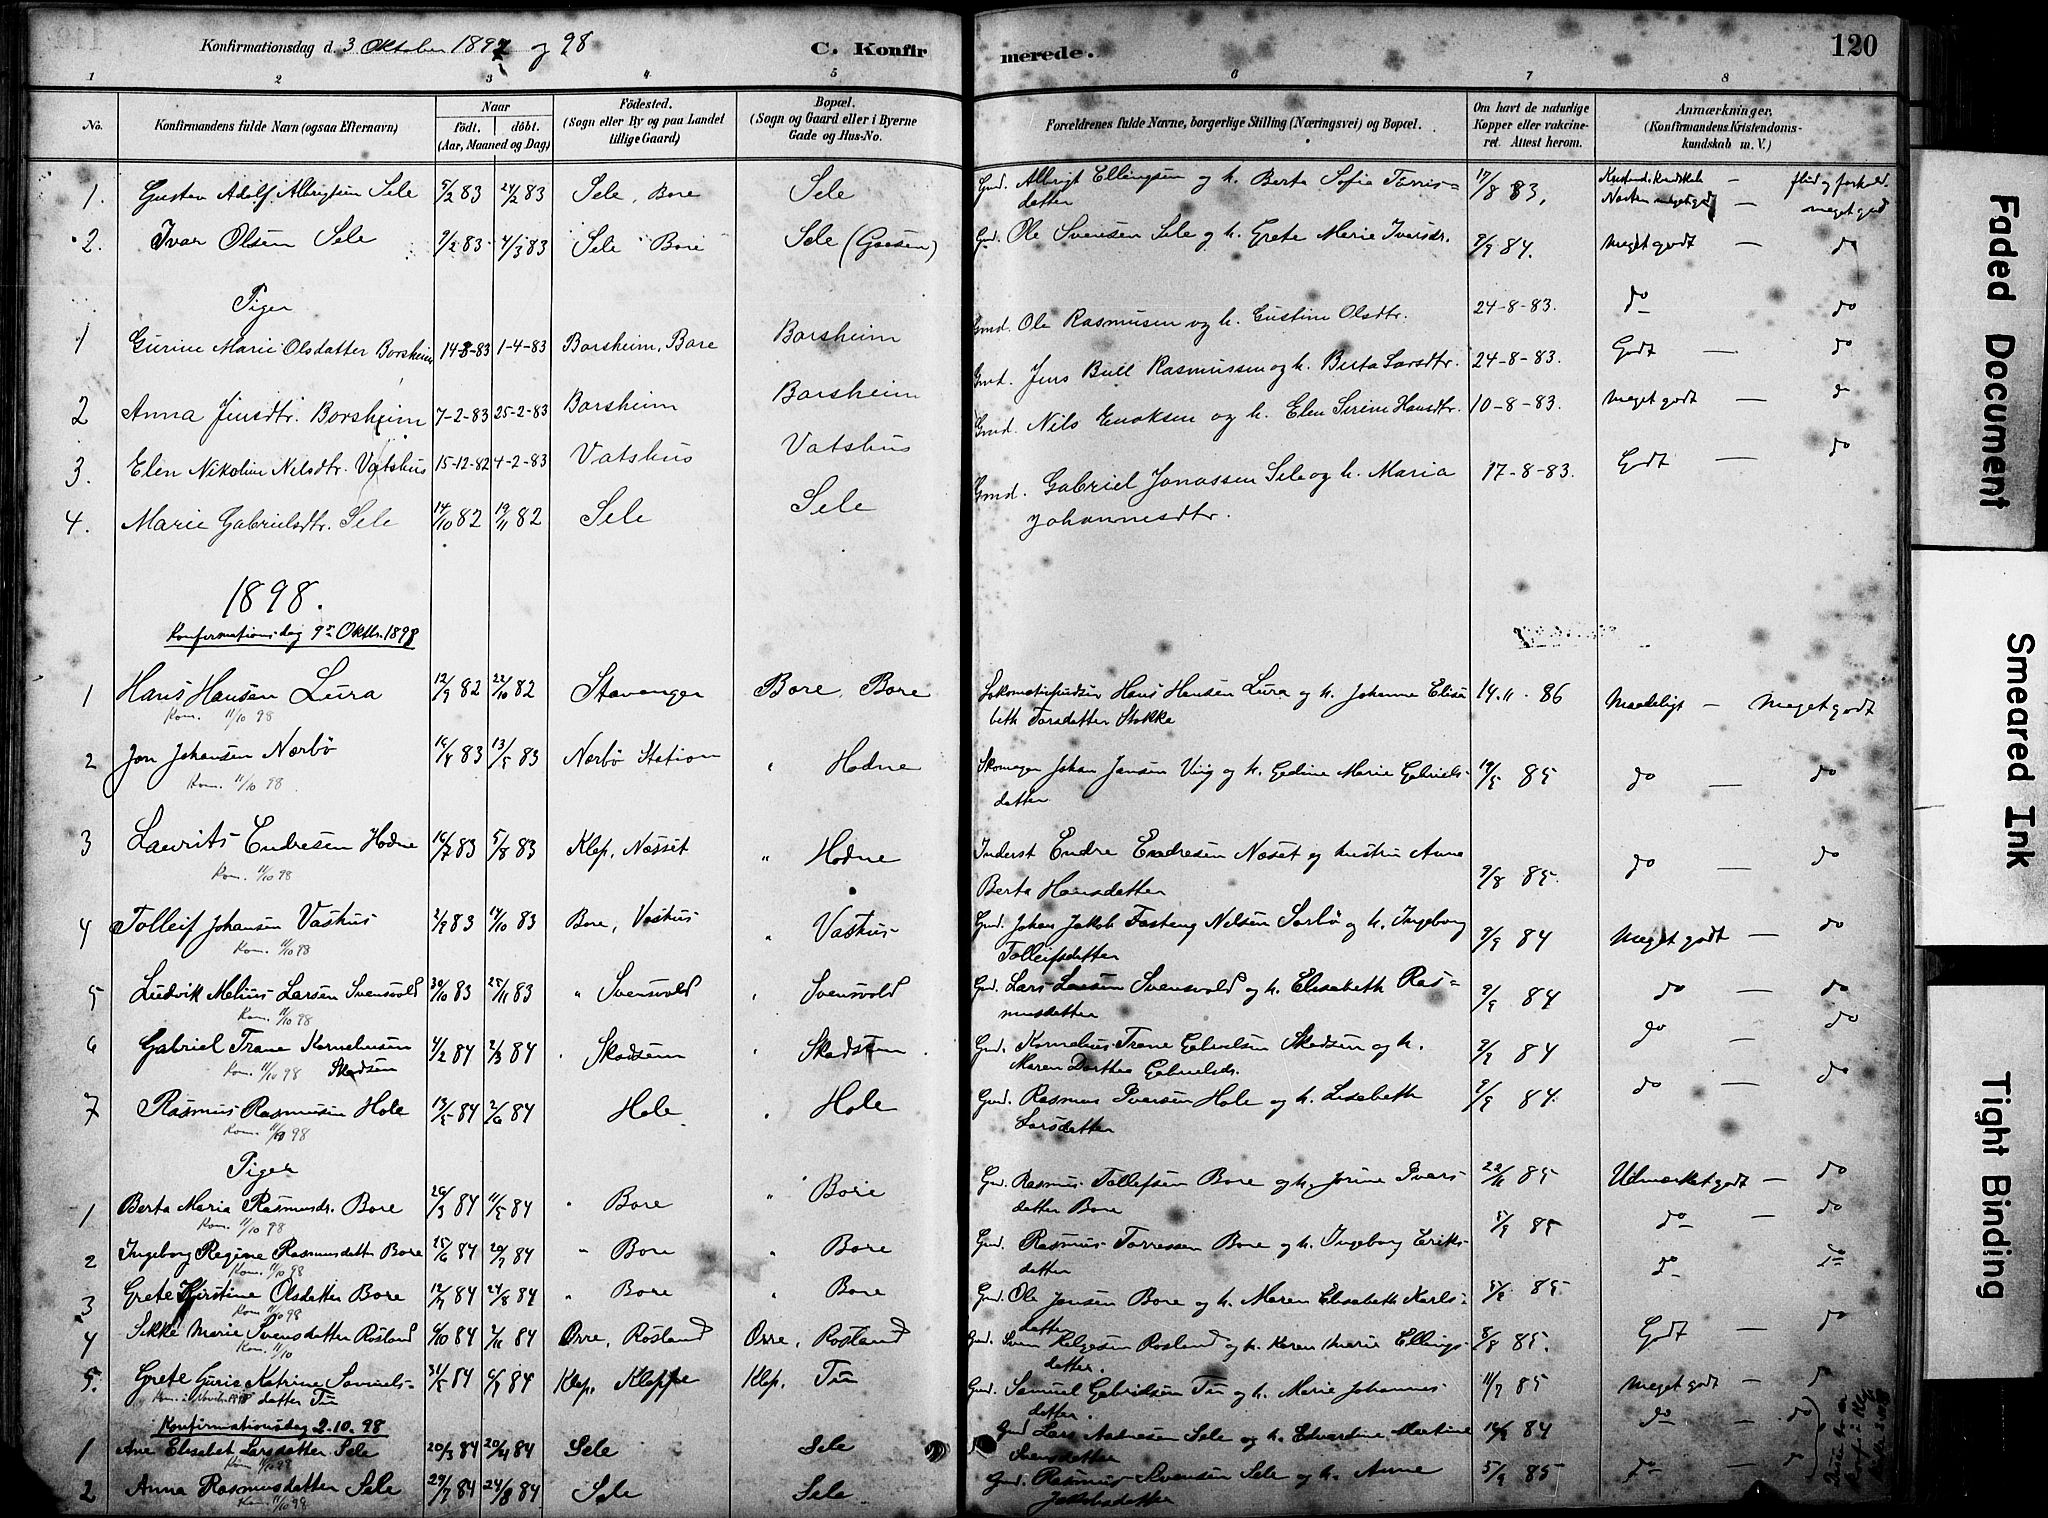 Konfirmationsdag d. 3 Oktober 1897 og 98
C. Konfirmerede.
120
1 2 3 4 5 6 7 8
No.
Konfirmandens fulde Navn (ogsaa Efternavn)
Naar
födt. döbt.
(Aar, Maaned og Dag)
Födested.
(Sogn eller By og paa Landet
tillige Gaard)
Bopæl.
(Sogn og Gaard eller i Byerne
Gade og Hus-No.
Forældrenes fulde Navne, borgerlige Stilling (Næringsvei) og Bopæl.
Om havt de naturlige
Kopper eller vakcine-
ret. Attest herom.
Anmærkninger,
(Konfirmandens Kristendoms-
kundskab m. V.)
1. Gustav Adolf Albrigtsen Sele 5/2 83 24/2 83 Sele, Bore Sele Gmd. Albrigt Ellingsen og h. Berta Sofia Torris= 17/8 83, flid og forhold
datter meget godt
2. Ivar Olsen Sele 9/2 83 4/3 83 Sele Bore Sele (Gaasen) Gmd. Ole Svensen Sele og h. Grete Marie Ivarsdr. 9/9 84. meget godt — do
Piger
1 Gurine Marie Olsdatter Borsheim 14-3-83 1-4-83 Borsheim, Bore Borsheim Gmd. Ole Rasmusen og h. Gustine Olsdtr. 24-8-83. do do
2 Anna Jensdtr. Borsheim 7-2-83 25-2-83 Borsheim Borsheim Gmd. Jens Bull Rasmussen og h. Berta Larsdtr. 24-8-83. Godt — do
3. Elen Nikoline Nilsdtr. Vatshus 15-12-82 4-2-83 Vatshus Vatshus Gmd. Nils Enoksen og h. Elen Serine Hansdtr. 10-8-83. meget godt — do
4. Marie Gabrielsdtr. Sele 14/10 82 19/11 82 Sele Sele Gmd. Gabriel Jonassen Sele og h. Maria 17-8-83. Godt — do
Johannesdtr.
1898.
Konfirmationsdag 9de Oktbr. 1898
1 Hans Hansen Lura 12/9 82 22/10 82 Stavanger Bore, Bore Lokomotivpudser Hans Hansen Lura og h. Johanne Elisa 14.11.86 Maadeligt — Meget godt
Kom. 11/10 98 beth Torsdatter Stokka
2 Jon Johansen Nærbø 16/4 83 13/5 83 Nærbø Station " Hodne Skomager Johan Jansen Ving og h. Gedine Marie Gabriels- 19/5 85 do — do
Kom. 11/10 98. datter
3 Laurits Endresen Hodne 16/7 83 5/8 83 Klep, Næsset " Hodne Inderst Endre Endresen Næset og hustru Anna 9/8 85. do do
Kom. 11/10 98 Berta Hansdatter
4 Tolleif Johansen Vashus 2/9 83 14/10 83 Bore, Vashus " Vashus Gmd. Johan Jakob Fasteng Nelsen Sørbø og h. Ingeborg 9/9 84 Meget godt — do
Kom. 11/10 98 Tolleifsdatter
5 Ludvik Melius Larsen Svensvold 30/10 83 25/11 83 " Svensvold " Svensvold Gmd. Lars Larsen Svensvold og h. Elisabeth Ras= 9/9 84 do — do
Kom. 11/10 98 musdatter
6 Gabriel Trane Korneliusen 4/2 84 2/3 84 " Skadsem " Skadsem Gmd. Kornelius Trane Gabrielsen Skadsem og h. 9/9 84 do — do
Kom. 11/10 98 Skadsem Maren Dorthea Gabrielsdr.
7 Rasmus Rasmusen Hole 13/5 84 2/6 84 Hole " Hole Gmd. Rasmus Iversen Hole og h. Lisabeth 9/9 84. do — do
Kom. 11/10 98 Larsdatter
Piger
1 Berta Maria Rasmusdr. Bore 26/3 84 11/5 84 " Bore " Bore Gmd. Rasmus Tollefsen Bore og h. Jorine Ivars 22/11 85 Udmærket godt — do
Kom. 11/10 98 datter Bore
2 Ingeborg Regine Rasmusdatter Bore 25/6 84 20/7 84 " Bore " Bore Gmd. Rasmus Torressen Bore og h. Ingeborg Eriks- 5/9 85 do — do
Kom. 11/10 98 datter
3 Grete Kirstine Olsdatter Bore 12/7 84 24/8 84 " Bore " Bore Gmd. Ole Jensen Bore og h. Maren Elisabeth Karls- 5/9 85 do do
Kom 11/10 98 datter
4 Sikke Marie Svensdatter Rosland 6/10 84 2/11 84 Orre, Rosland Orre, Rosland Gmd. Sven Helgesen Rosland og h. Karen Marie Ellings- 8/8 85. Godt — do
Kom. 11/10 datter.
5. Grete Gurie Katrine Samuels- 31/5 84 6/7 84 Klep, Kleppe Klep, Tu Gmd. Samuel Gabrielsen Tu og h. Marie Johannes 11/7 85 Meget godt — do
datter Tu datter.
Konfirmationsdag 2-10.98
1 Ane Elisabet Larsdatter Sele 20/3 84 20/4 84 Sele Sele Gmd Lars Aanesen Sele og h. Edvardine Martine 14/9 84 do — do
Kom 11/10 98 Svensdatter
2 Anna Rasmusdatter Sele 29/7 84 24/8 84 Sele Sele Gmd. Rasmus Svensen Sele og h. Anne 5/9 85 do — do
Kom. 11/10 98 Jakobsdatter
Faded Document
Smeared Ink
Tight Binding